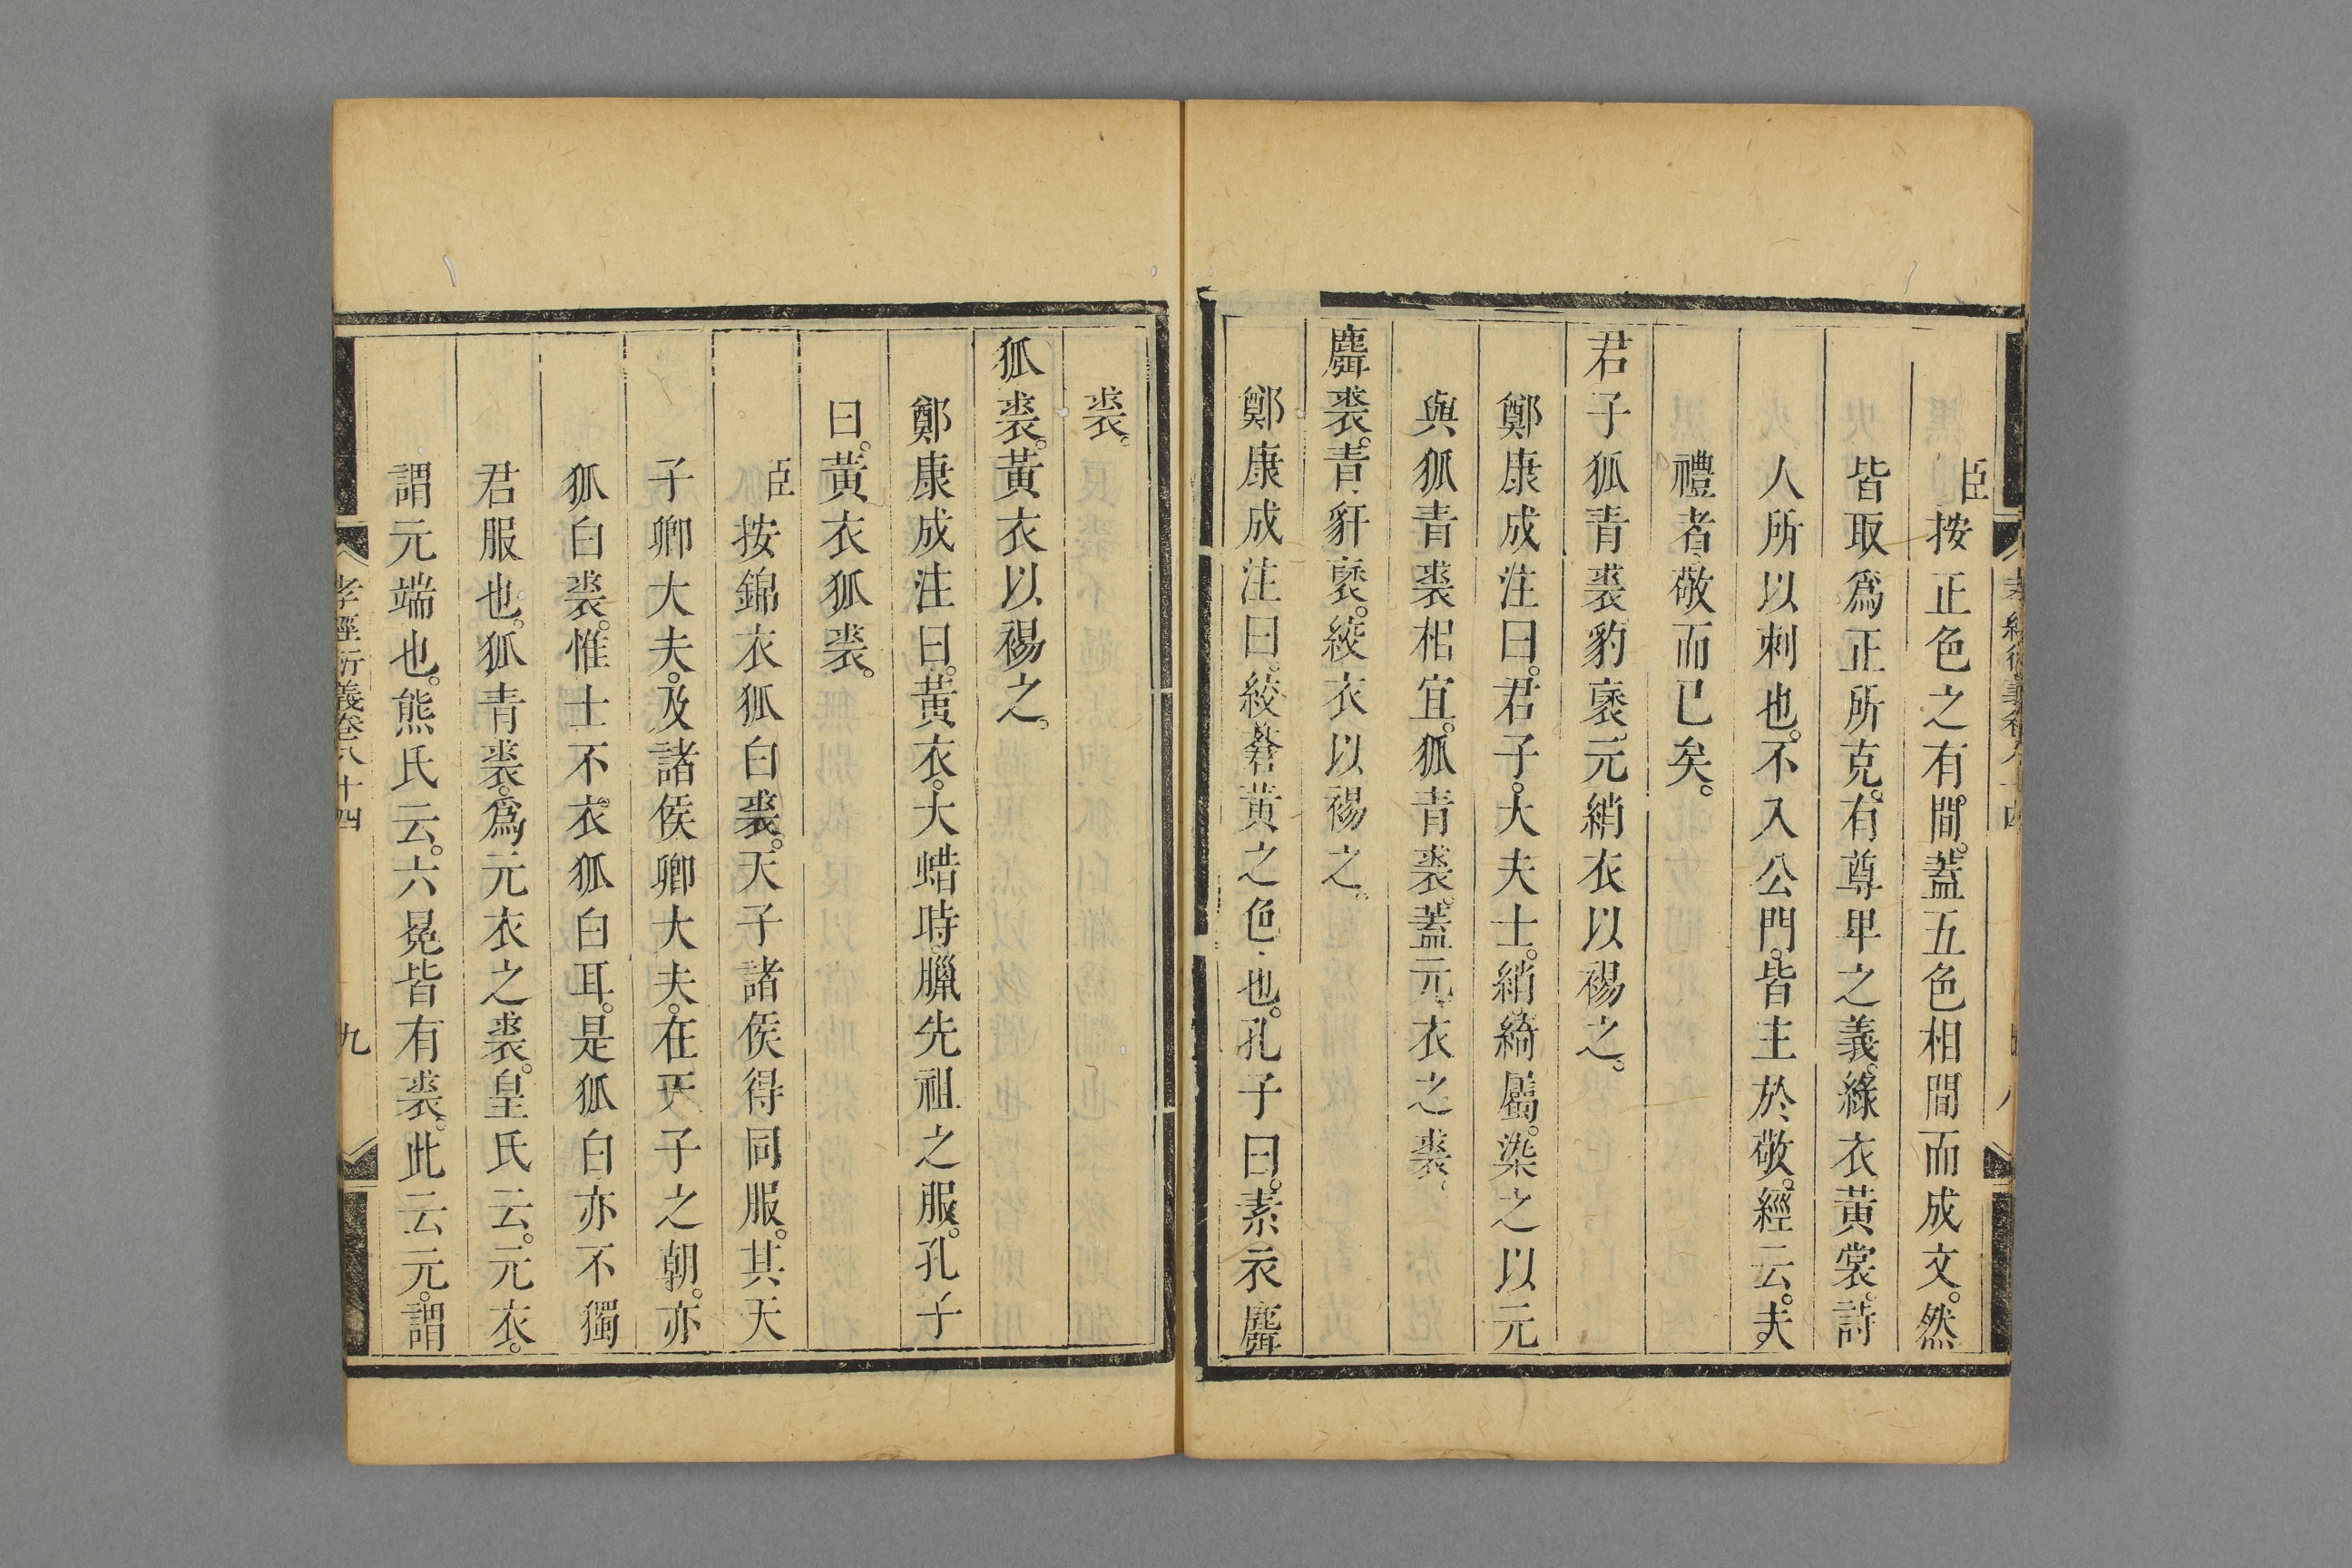 臣按正色之有間。蓋五色相間而成文。然
皆取爲正所克。有尊卑之義。綠衣黃裳。詩
人所以刺也。不入公門。皆主於敬。經云。夫
禮者敬而已矣。
君子狐青裘豹褎。元綃衣以裼之。
鄭康成注曰。君子。大夫士。綃。綺屬。染之以元
與狐青裘相宜。狐青裘。蓋元衣之裘。
麛裘。青豻褎。絞衣以裼之。
鄭康成注曰。絞。蒼黃之色也。孔子曰。素衣麛
裘。
狐裘。黃衣以裼之。
鄭康成注曰。黃衣。大蜡時。臘先祖之服。孔子
曰。黃衣狐裘。
臣按錦衣狐白裘。天子諸侯得同服。其天
子卿大夫。及諸侯卿大夫。在天子之朝。亦
狐白裘。惟士不衣狐白耳。是狐白亦不獨
君服也。狐青裘。爲元衣之裘。皇氏云。元衣。
謂元端也。熊氏云。六冕皆有裘。此云元。謂
孝經衍義卷八十四
九